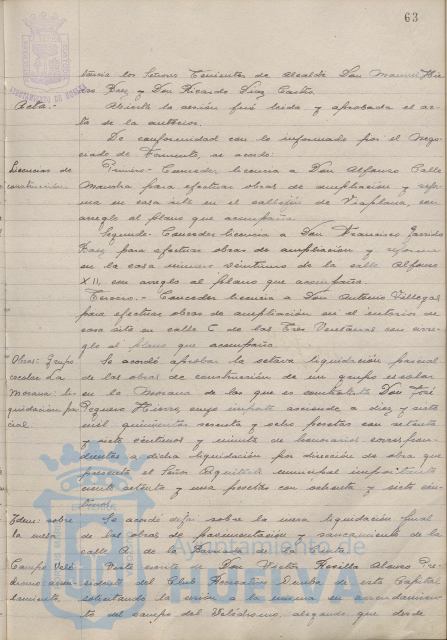 63
AYUNTAMIENTO DE HUELVA
tencia los Señores Tenientes de Alcalde Don Manuel
Baez y Don Ricardo Diaz Castro.
Acta.- Abierta la sesión fué leida y aprobada el ac-
ta de la anterior.
De conformidad con lo informado por el Nego-
ciado de Fomento, se acordó:
Licencias de construcción. Primero.- Conceder licencia a Don Alfonso Calle
Mancha para efectuar obras de ampliación y refor-
ma en casa sita en el callejón de Viaplana, con
arreglo al plano que acompaña.
Segundo.- Conceder licencia a Don Francisco Garrido
Baez para efectuar obras de ampliación y reforma
en la casa número veintiuno de la calle Alfonso
XII, con arreglo al plano que acompaña.
Tercero.- Conceder licencia a Don Antonio Villegas
para efectuar obras de ampliación en el interior de
casa sita en calle C de las Tres Ventanas con arre-
glo al plano que acompaña.
Obras: Grupo Se acordó aprobar la octava liquidación parcial
escolar La de las obras de construcción de un grupo escolar
Morana: li- en la Morana de las que es contratista Don José
quidación par Peguero Hierro, cuyo importe asciende a diez y siete
cial. mil quinientas sesenta y ocho pesetas con setenta
y siete céntimos y minuta de honorarios correspon-
dientes a dicha liquidación por dirección de obra que
presenta el Señor Arquitecto municipal importante
ciento setenta y una pesetas con ochenta y siete cén-
timos.
Idem: sobre Se acordó dejar sobre la mesa liquidación final
la mesa de las obras de pavimentación y saneamiento de la
calle A. de la Barriada de la
Campo Veló- Visto escrito de Don Victor Revilla Alonso Pre-
dromo: arren- sidente del Club Recreativo Onuba de esta Capital
damiento. solicitando la a la misma en arrendamien-
to del campo del Velódromo, alegando que desde
Ayuntamiento de
HUELVA